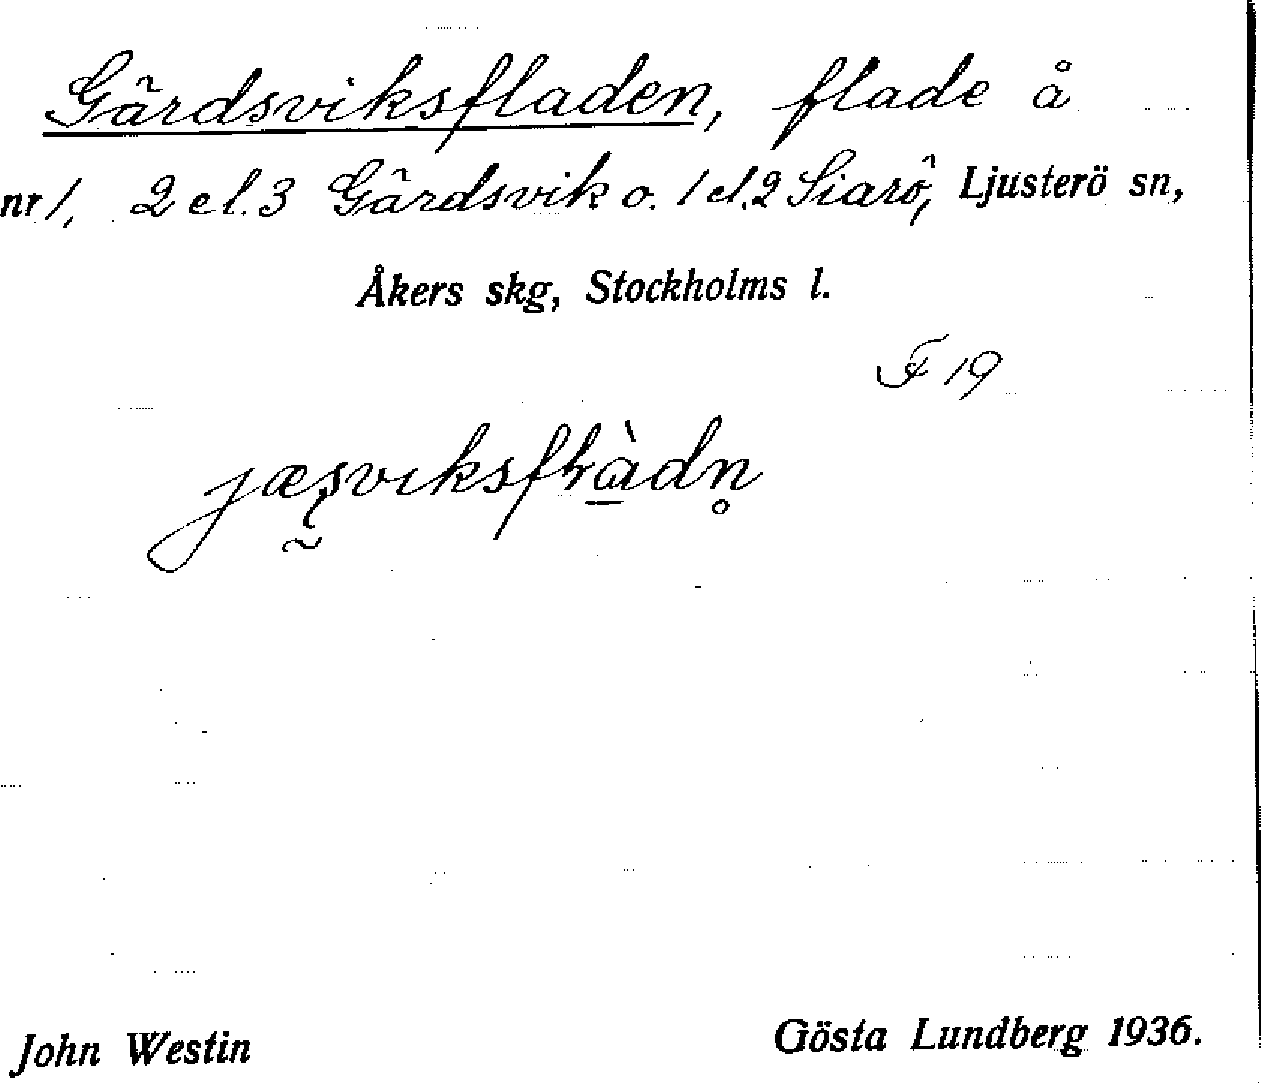 Gärdsviksfladen, flade å
nr 1, 2 el. 3 Gärdsvik o. 1 el. 2 Siarö, Ljusterö sn,
Åkers skg, Stockholms l.
F 19
John Westin Gösta Lundberg 1936.